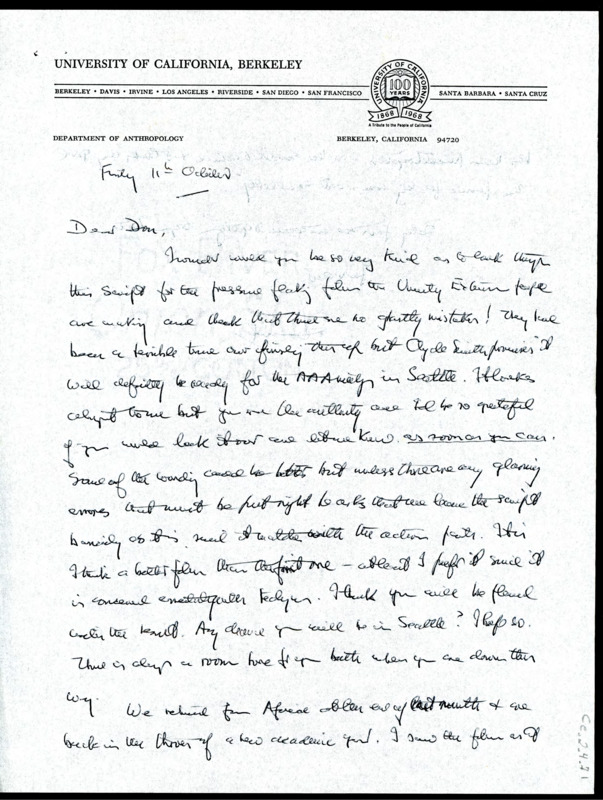 UNIVERSITY OF CALIFORNIA, BERKELEY
BERKELEY • DAVIS • IRVINE • LOS ANGELES • RIVERSIDE • SAN DIEGO • SAN FRANCISCO
UNIVERSITY OF CALIFORNIA
100 YEARS
1868 1968
A Tribute to the People of California
SANTA BARBARA • SANTA CRUZ
DEPARTMENT OF ANTHROPOLOGY
BERKELEY, CALIFORNIA 94720
11th October
Dear Don,
I wonder would you be so very kind as to look through
this script for the pressure flaking film the University Extension people
are making and check that there are no ghastly mistakes! They have
been a terrible time over finishing this up but Clyde Smith promises it
will definitely be ready for the AAA meetings in Seattle. It looks
alright to me but you are the authority and I'd be so grateful
if you would look it over and let me know as soon as you can.
Some of the wording could be better but unless there are any glaring
errors that must be put right he asks that we leave the script
as it is, since it matches with the action. It is
I think a better film than the first one – at least I prefer it since it
is concerned with technique. I think you will be pleased
with the result. Any chance you will be in Seattle? I hope so.
There is always a room here for you both when you are down this
way.
We returned from Africa at the end of last month & are
back in the throes of a new academic year. I saw the film as it
Cc.2.4.21